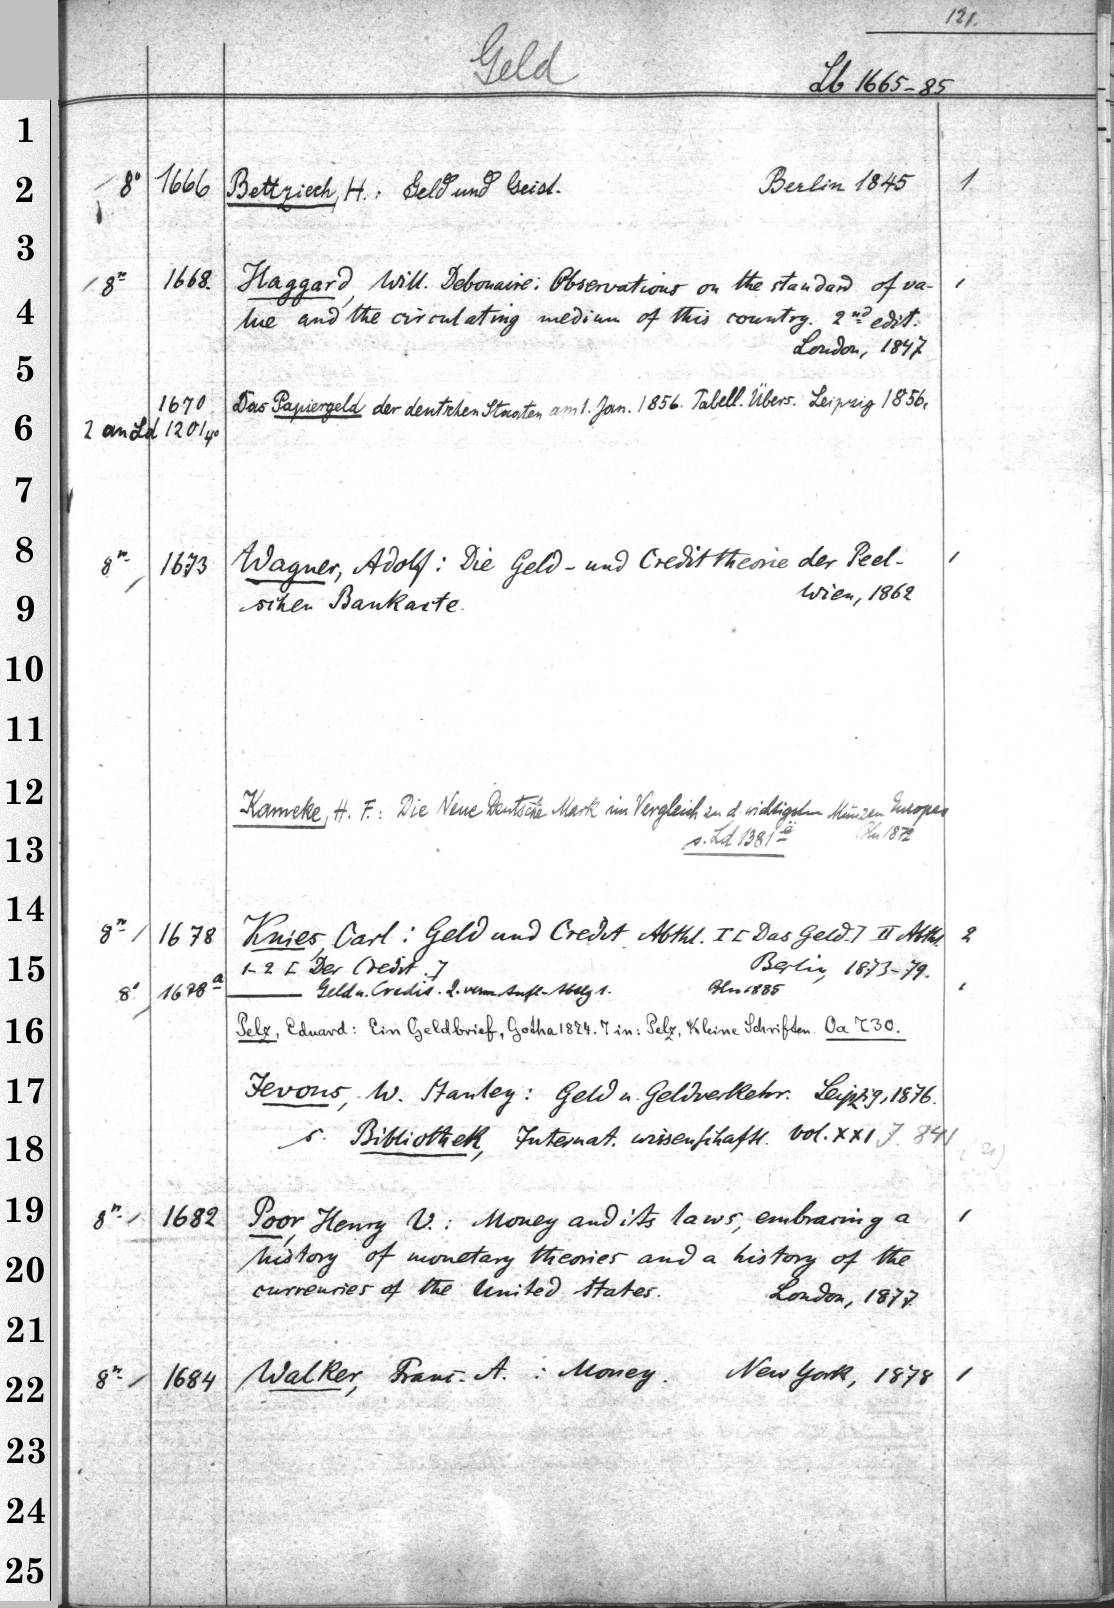 121.
Geld
Lb 1665-85
1
2 8° 1666 Bettziech, H.: Geld und Geist. Berlin 1845 1
3
8° 1668. Haggard, Will. Debonaire: Observations on the standard of va- 1
4 lue and the circulating medium of this country. 2nd edit.
London, 1847
5
1670 Das Papiergeld der deutschen Staaten am 1. Jan. 1856. Tabell. Übers. Leipzig 1856.
6 2 an Ld 1201 4°
7
8 8° 1673 Wagner, Adolf: Die Geld- und Credittheorie der Peel- 1
9 schen Bankacte. Wien, 1862
10
11
12 Kameke, H. F.: Die Neue Deutsche Mark im Vergleich zu d. wichtigsten Münzen Europas
13 s. Ld 1381 Bln 187
14
8° 1678 Knies, Carl: Geld und Credit. Abthl. I [Das Geld.] II Abthl. 2
15 1-2 [Der Credit.] Berlin, 1873-79.
8° 1678a ——— Geld u. Credit. 2. verm. Aufl. Abtlg 1. Bln 1885 1
16 Pelz, Eduard: Ein Geldbrief, Gotha 1874. 7 in: Pelz, Kleine Schriften. Oa 730.
17 Jevons, W. Stanley: Geld u. Geldverkehr. Leipzig, 1876.
18 s. Bibliothek, Internat. wissenschaftl. vol. XXI J. 841 (21)
19 8° 1682 Poor, Henry V.: Money and its laws, embracing a 1
20 history of monetary theories and a history of the
currencies of the United States. London, 1877
21
22 8° 1684 Walker, Franc. A.: Money. New York, 1878 1
23
24
25